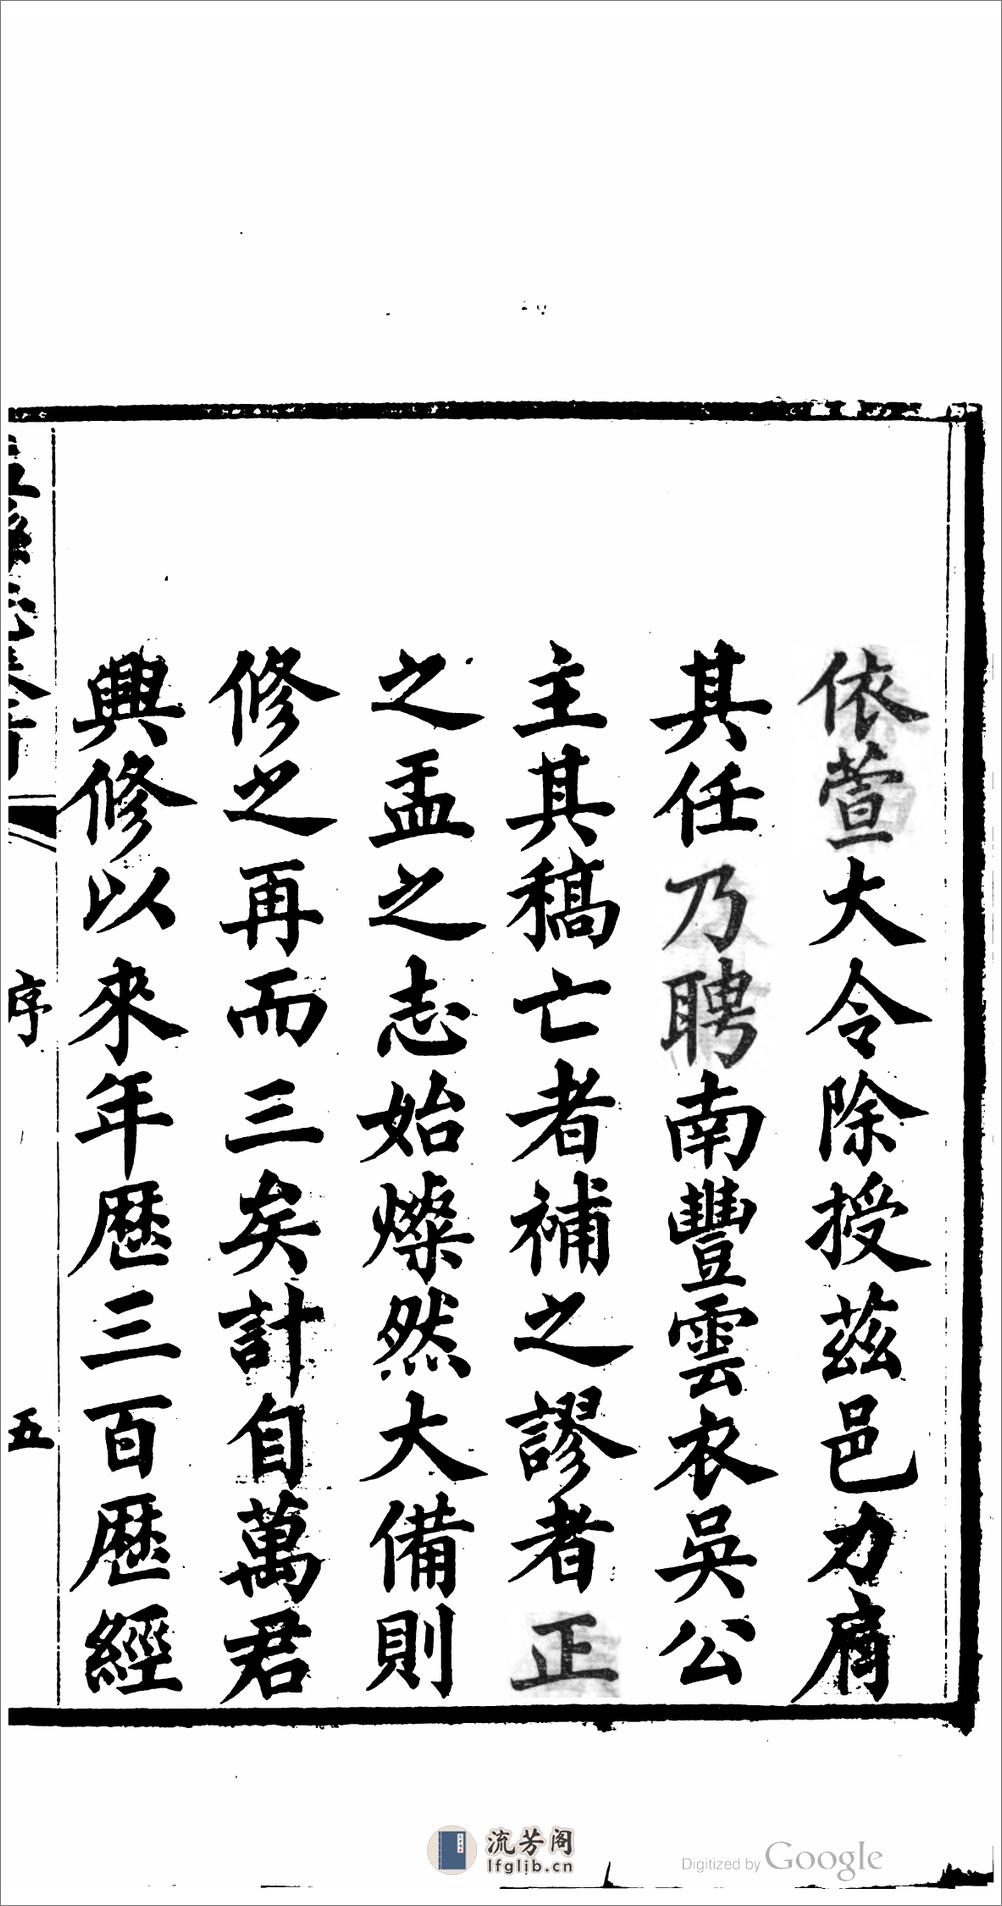 依萱大令除授茲邑力肩
其任乃聘南豐雲衣吳公
主其稿亡者補之謬者正
之孟之志始燦然大備則
修之再而三矣計自萬君
興修以來年歷三百歷經
序
五
流芳阁
lfglib.cn
Digitized by Google